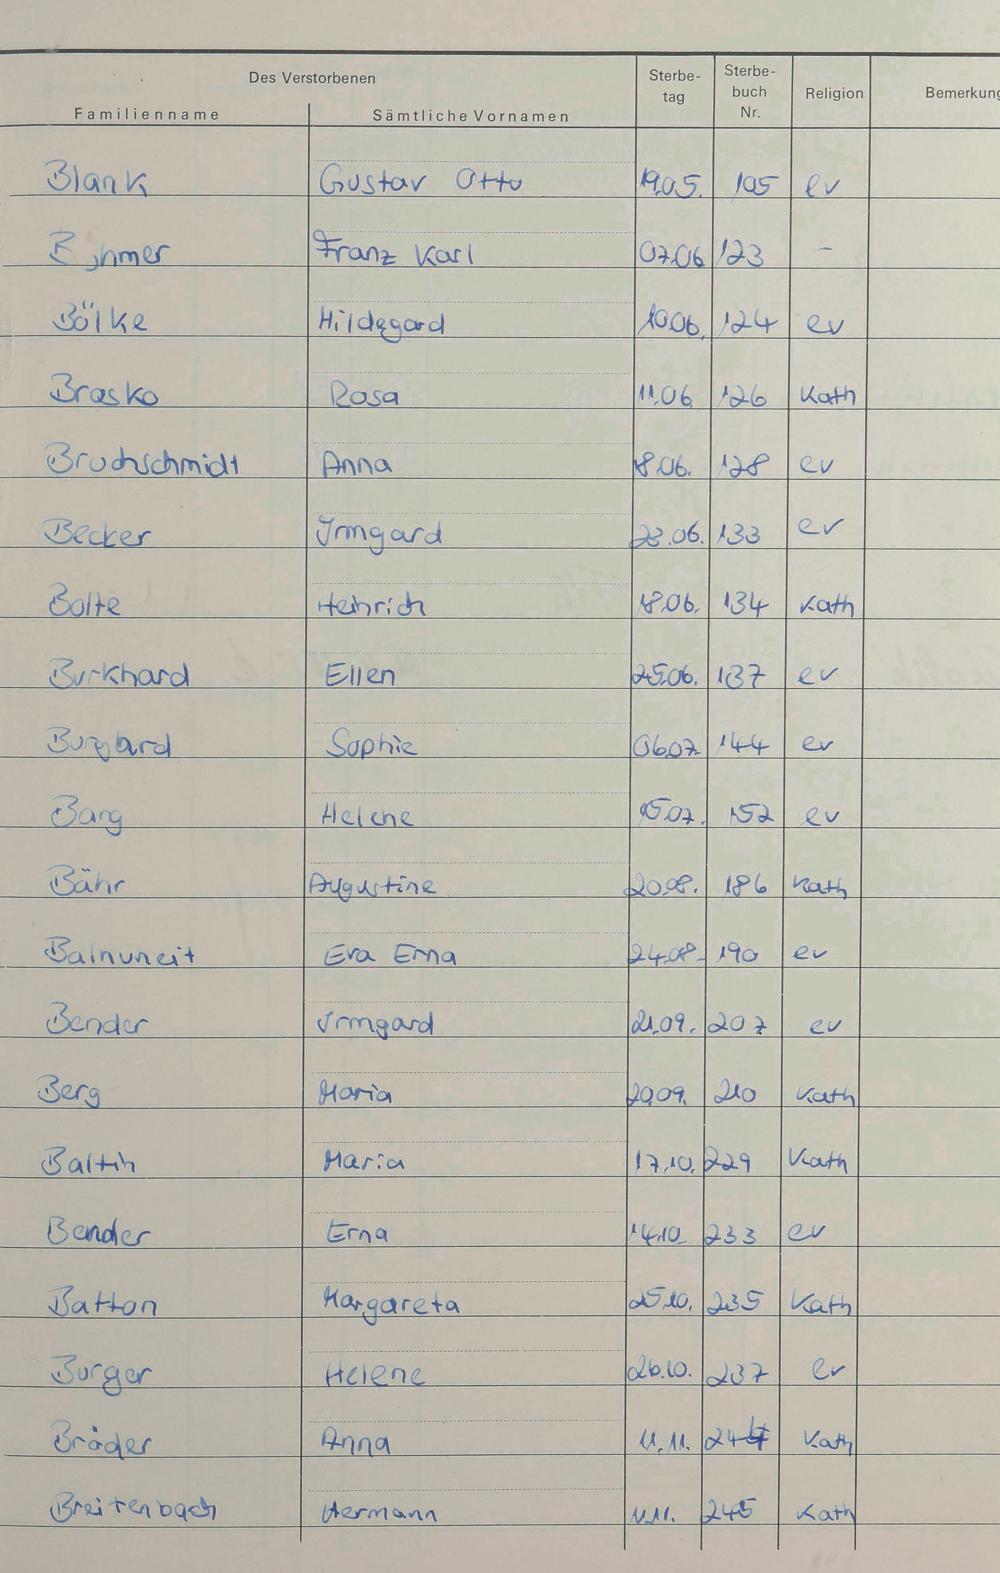 Des Verstorbenen
Familienname Sämtliche Vornamen Sterbe-tag Sterbe-buch Nr. Religion Bemerkung
Blank Gustav Otto 19.05. 105 ev
Franz Karl 07.06 123 -
Bölke Hildegard 10.06. 124 ev
Brasko Rosa 11.06. 126 Kath
Bruchschmidt Anna 18.06. 128 ev
Becker Irmgard 23.06. 133 ev
Bolte Heinrich 18.06. 134 Kath
Burkhard Ellen 25.06. 137 ev
Burgard Sophie 06.07. 144 ev
Bang Helene 15.07. 152 ev
Bähr Augustine 20.08. 186 Kath
Balnuneit Eva Erna 24.08. 190 ev
Bender Irmgard 21.09. 207 ev
Berg Maria 29.09. 210 Kath
Baltin Maria 17.10. 229 Kath
Bender Erna 14.10. 233 ev
Batton Margareta 25.10. 235 Kath
Burger Helene 26.10. 237 ev
Bröder Anna 11.11. 244 Kath
Breitenbach Hermann 11.11. 245 Kath